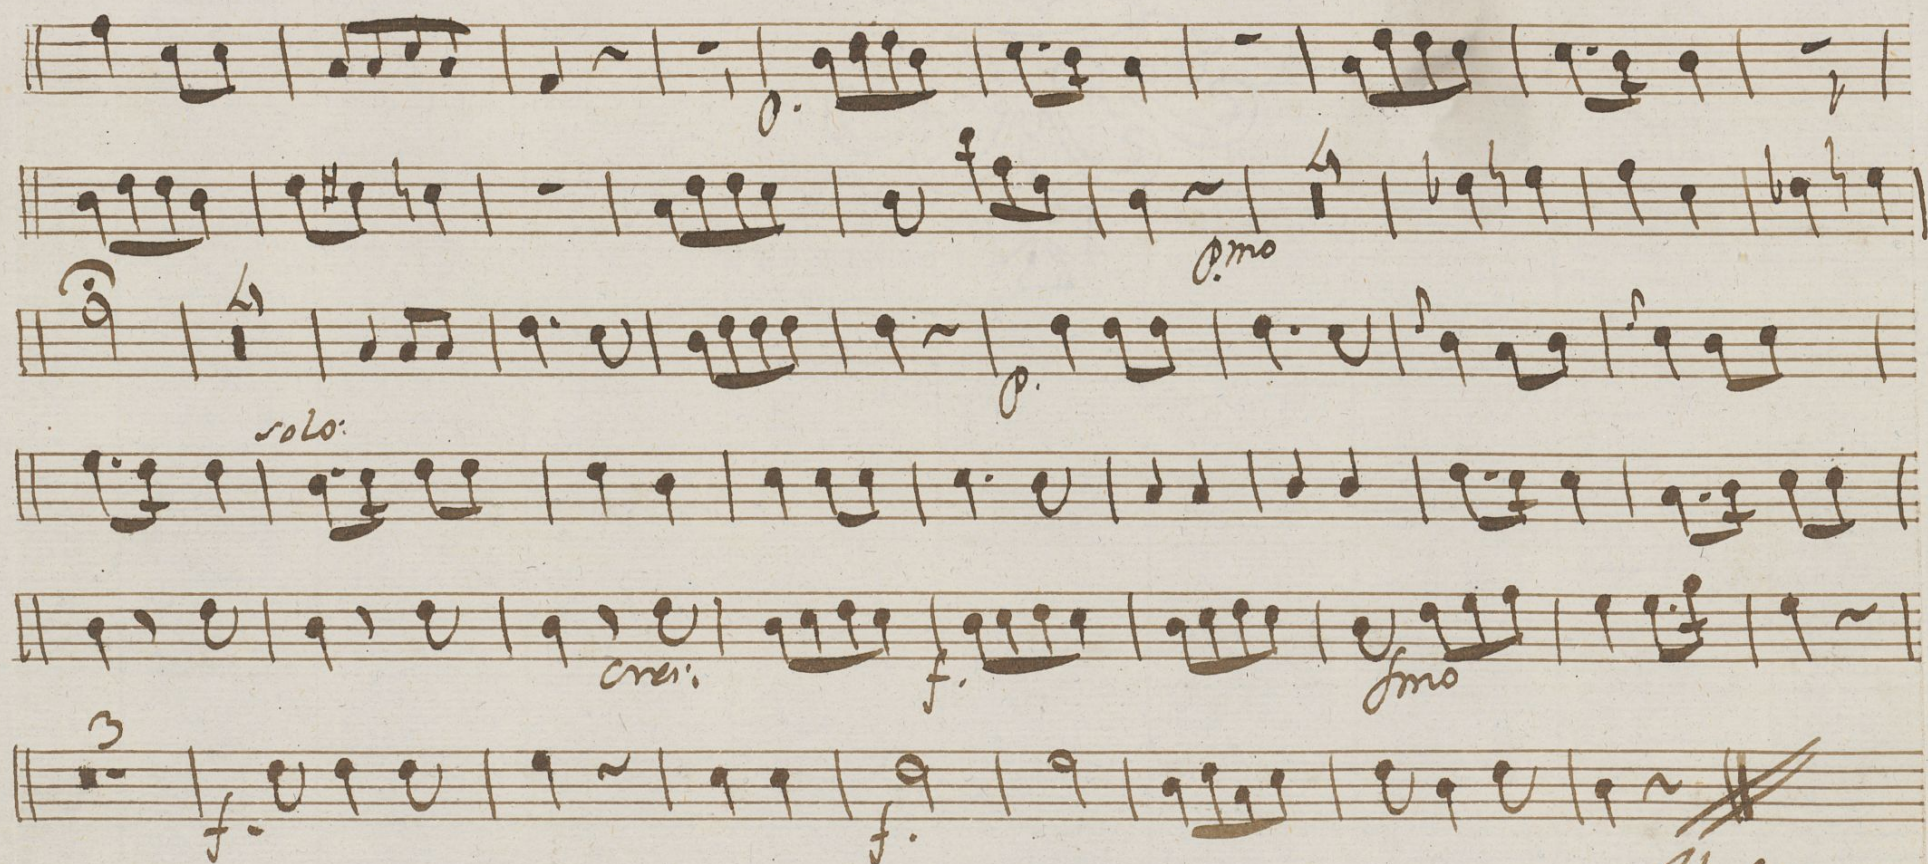 p.
p.mo
4
4
p.
solo:
cres:
f.
fmo
3
f.
f.